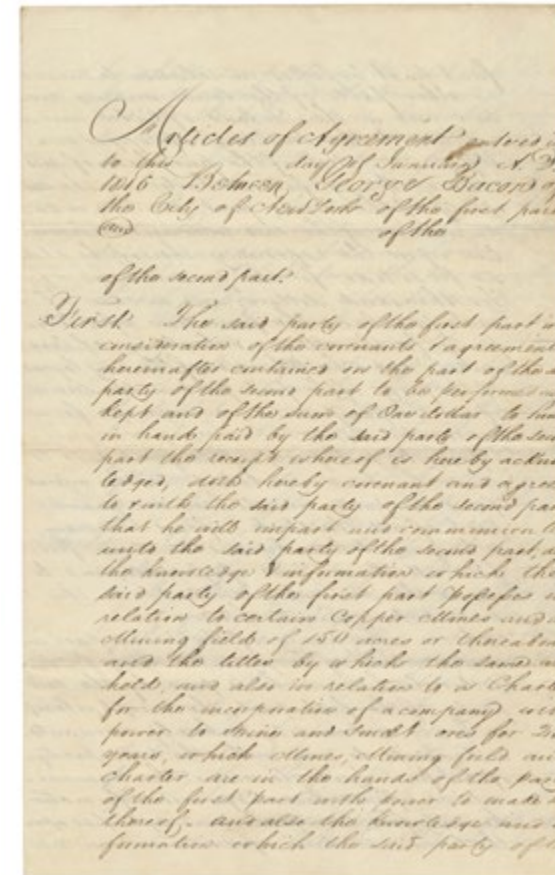 Articles of Agreement entered in
to this day of January A. D.
1846 Between George Bacon of
the City of New York of the first part
and of the
of the second part.
First. The said party of the first part in
consideration of the covenants & agreement
hereinafter contained on the part of the s
party of the second part to be performed a
kept and of the sum of One dollar to him
in hand paid by the said party of the sec
part the receipt whereof is hereby acknow
ledged, doth hereby covenant and agree
to & with the said party of the second par
that he will impart and communicat
unto the said party of the second part, a
the knowledge & information which the
said party of the first part possess i
relation to certain Copper Mines and a
Mining field of 150 acres or thereabou
and the titles by which the same a
held, and also in relation to a Chart
for the incorporation of a company wi
power to mine and smelt ores for
years, which Mines, Mining field an
charter are in the hands of the par
of the first part with power to make
thereof. And also the knowledge and
formation which the said party of t